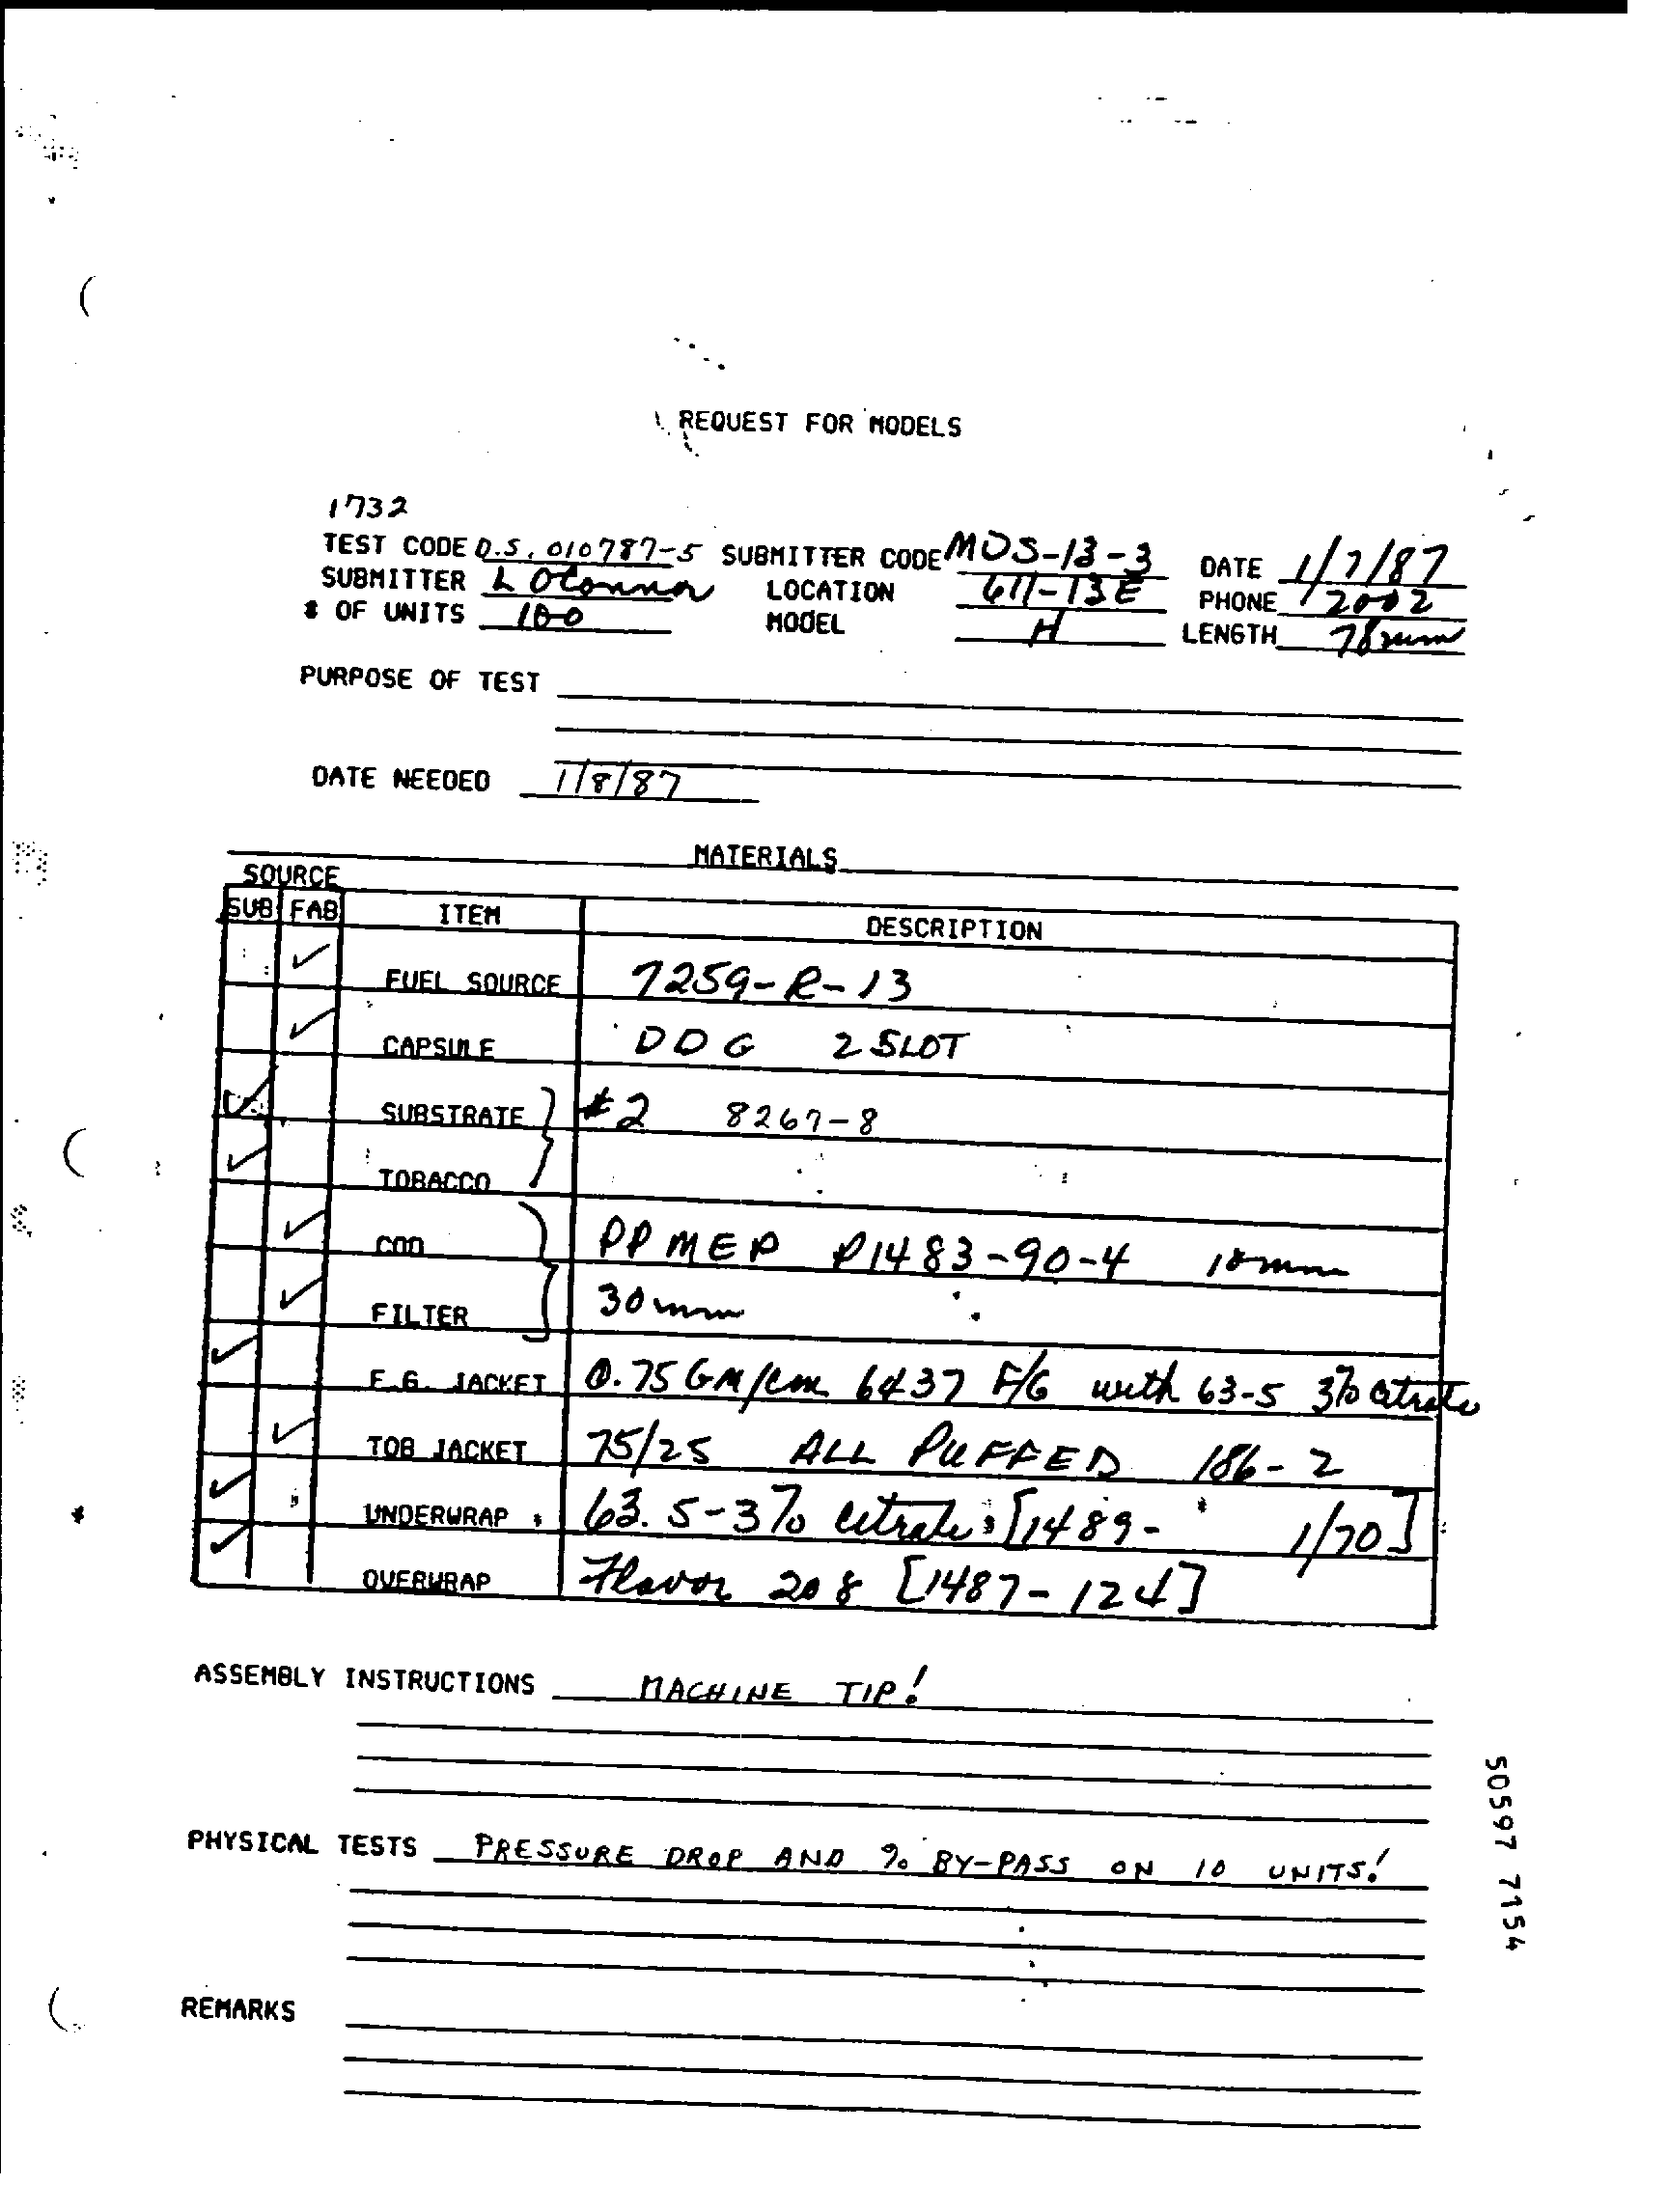 REQUEST FOR MODELS
1732
TEST CODE D.S. 010787-5 SUBMITTER CODE MOS-13-3 DATE 1/7/87
SUBMITTER L OConnor LOCATION 611-13E PHONE 2002
# OF UNITS 100 MODEL H LENGTH 78mm
PURPOSE OF TEST
DATE NEEDED 1/8/87
MATERIALS
SOURCE
SUB FAB ITEM DESCRIPTION
✓ FUEL SOURCE 7259-R-13
✓ CAPSULE DDG 2 SLOT
✓ SUBSTRATE } #2 8267-8
✓ TOBACCO
✓ COD } PPMEP P1483-90-4 10mm
✓ FILTER 30mm
✓ F.G. JACKET 0.75 GM/cm 6437 F/G with 63-5 3% citrate
✓ TOB JACKET 75/25 ALL PUFFED 186-2
✓ UNDERWRAP 63.5-3% citrate [1489- 1/70]
✓ OVERWRAP Flavor 208 [1487-124]
ASSEMBLY INSTRUCTIONS MACHINE TIP!
PHYSICAL TESTS PRESSURE DROP AND % BY-PASS ON 10 UNITS!
REMARKS
50597 7154